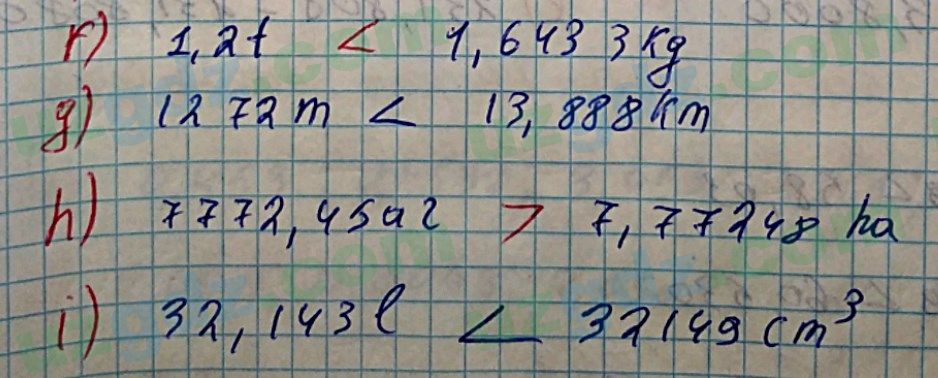 f) 1,2t < 1,643 3 kg
g) 1272 m < 13,888 km
h) 7772,45 ar > 7,77248 ha
i) 32,143 l < 32149 cm³